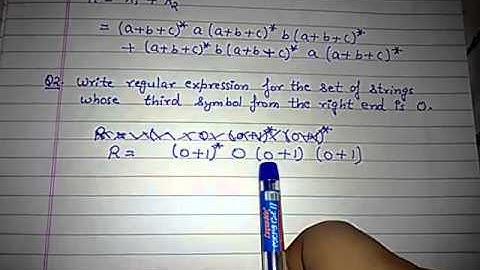 = (a+b+c)* a (a+b+c)* b (a+b+c)*
+ (a+b+c)* b (a+b+c)* a (a+b+c)*
Q2 Write regular expression for the set of strings
whose third symbol from the right end is 0.
R = (0+1)* 0 (0+1) (0+1)